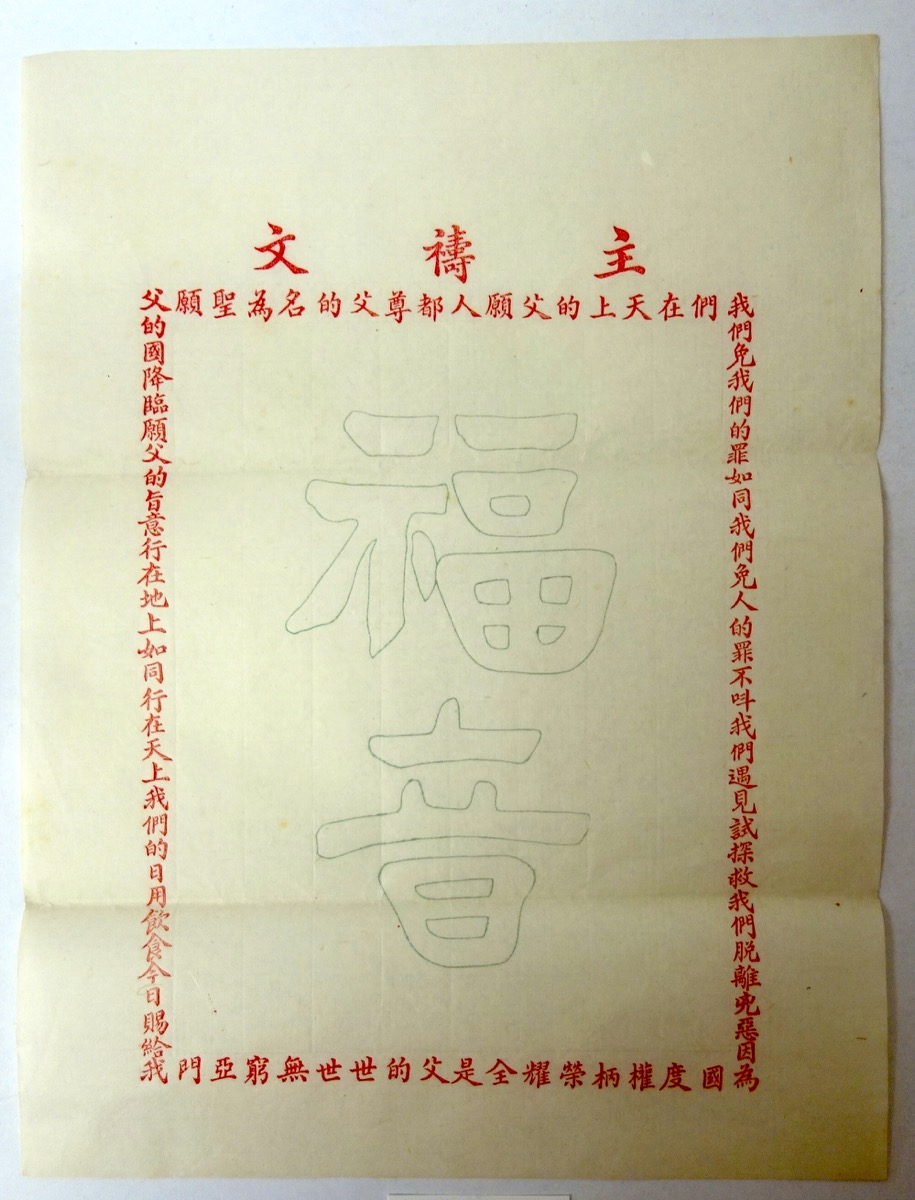 主禱文
們在天上的父願人都尊父的名為聖願
父的國降臨願父的旨意行在地上如同行在天上我們的日用飲食今日賜給我
我們免我們的罪如同我們免人的罪不呌我們遇見試探救我們脫離兇惡因為
國度權柄榮耀全是父的世世無窮亞門
福音